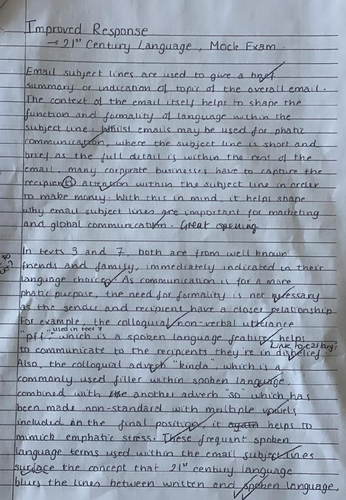 Improved Response
→ 21st Century Language, Mock Exam.
Email subject lines are used to give a brief
summary or indication of topic of the overall email.
The context of the email itself helps to shape the
function and formality of language within the
subject line. Whilst emails may be used for phatic
communication, where the subject line is short and
brief as the full detail is within the rest of the
email, many corporate businesses have to capture the
recipients attention within the subject line in order
to make money. With this in mind, it helps shape
why email subject lines are important for marketing
and global communication. Great opening
In texts 3 and 7, both are from well known
friends and family, immediately indicated in their
language choice. As communication is for a more
phatic purpose, the need for formality is not necessary
as the sender and recipient have a closer relationship.
For example, the colloquial non-verbal utterance
"used in text 7
"pff" which is a spoken language feature, helps
Link to
to communicate to the recipients they're in disbelief.
Also, the colloquial adverb "kinda", which is a
commonly used filler within spoken language,
combined with another adverb "so" which has
been made non-standard with multiple vowels
included in the final position, it helps to
mimick emphatic stress. These frequent spoken
language terms used within the email subject lines
surface the concept that 21st century language
blurs the lines between written and spoken language